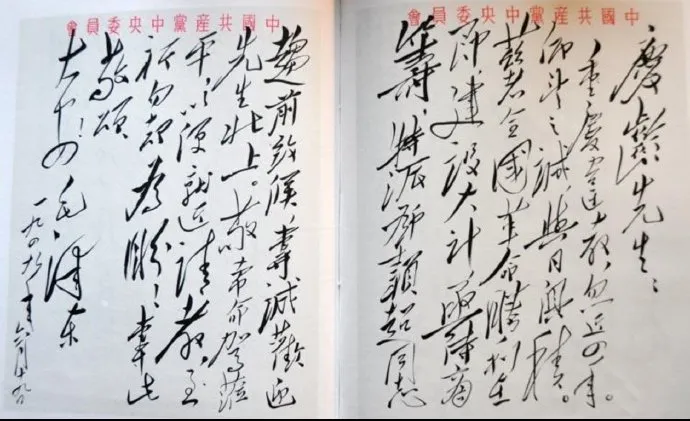 中國共產黨中央委員會
慶齡先生：
重慶違教，忽近四年。
仰望之誠，與日俱積。
茲者全國革命勝利在
即，建設大計，亟待商
籌，特派鄧穎超同志
中國共產黨中央委員會
趨前致候，專誠歡迎
先生北上。敬希命駕蒞
平，以便就近請教，至
祈勿却為盼！專此
敬頌
大安！
毛澤東
一九四九年六月十九日